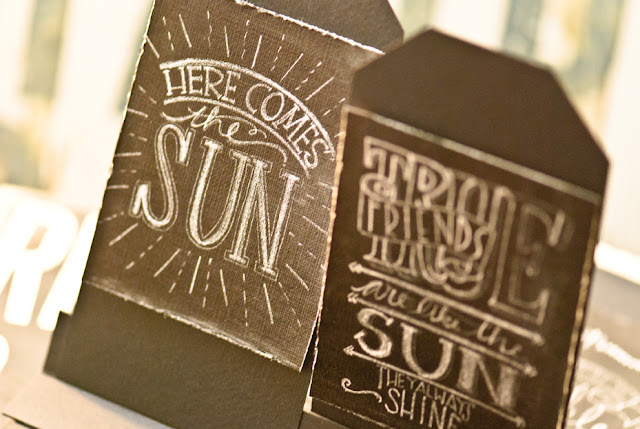 HERE COMES
the
SUN
TRUE
FRIENDS
are like the
SUN
THEY ALWAYS
SHINE